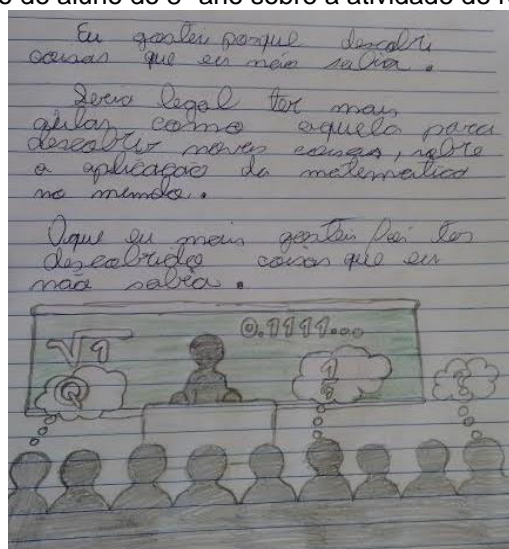 o de aluno de 8º ano sobre a atividade de r
Eu gostei porque descobri
coisas que eu não sabia.
Seria legal ter mais
aulas como aquela para
descobrir novas coisas, sobre
a aplicação da matemática
no mundo.
Oque eu mais gostei foi ter
descobrido coisas que eu
não sabia.
√1 0.1111...
Q
?